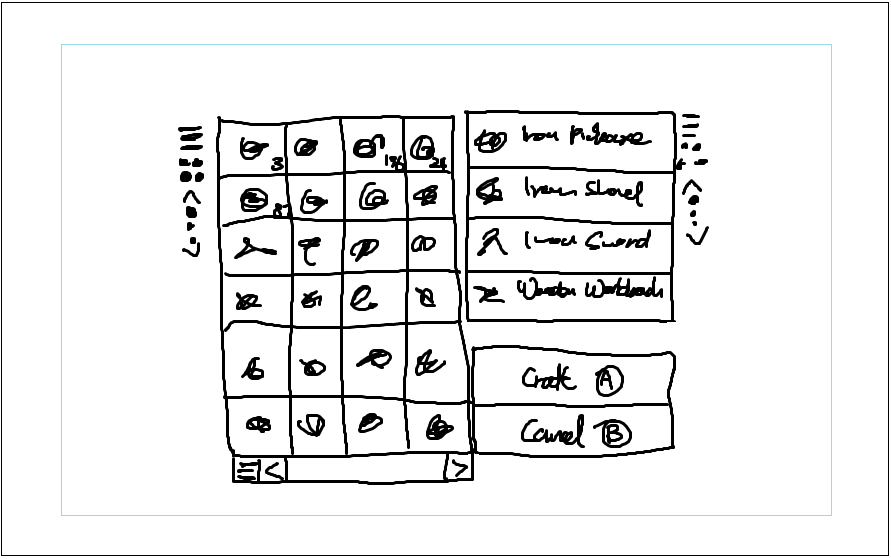 3
136
24
Iron Pickaxe
87
Iron Shovel
Iron Sword
Wooden Workbench
Craft A
Cancel B